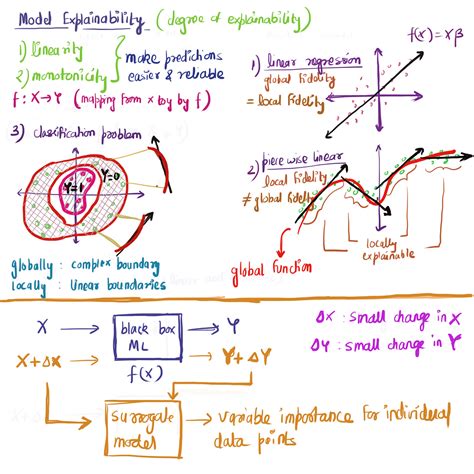 Model Explainability (degree of explainability)
1) linearity
2) monotonicity
make predictions
easier & reliable
f: X→Y (mapping from x to y by f)
3) classification problem
Y=1
Y=0
globally : complex boundary
locally : linear boundaries
1) linear regression
global fidelity
= local fidelity
f(x) = xβ
2) piece wise linear
local fidelity
≠ global fidelity
global function
locally
explainable
X → black box ML → Y
X+ΔX → f(x) → Y+ΔY
ΔX : small change in X
ΔY : small change in Y
surrogate model → variable importance for individual
data points